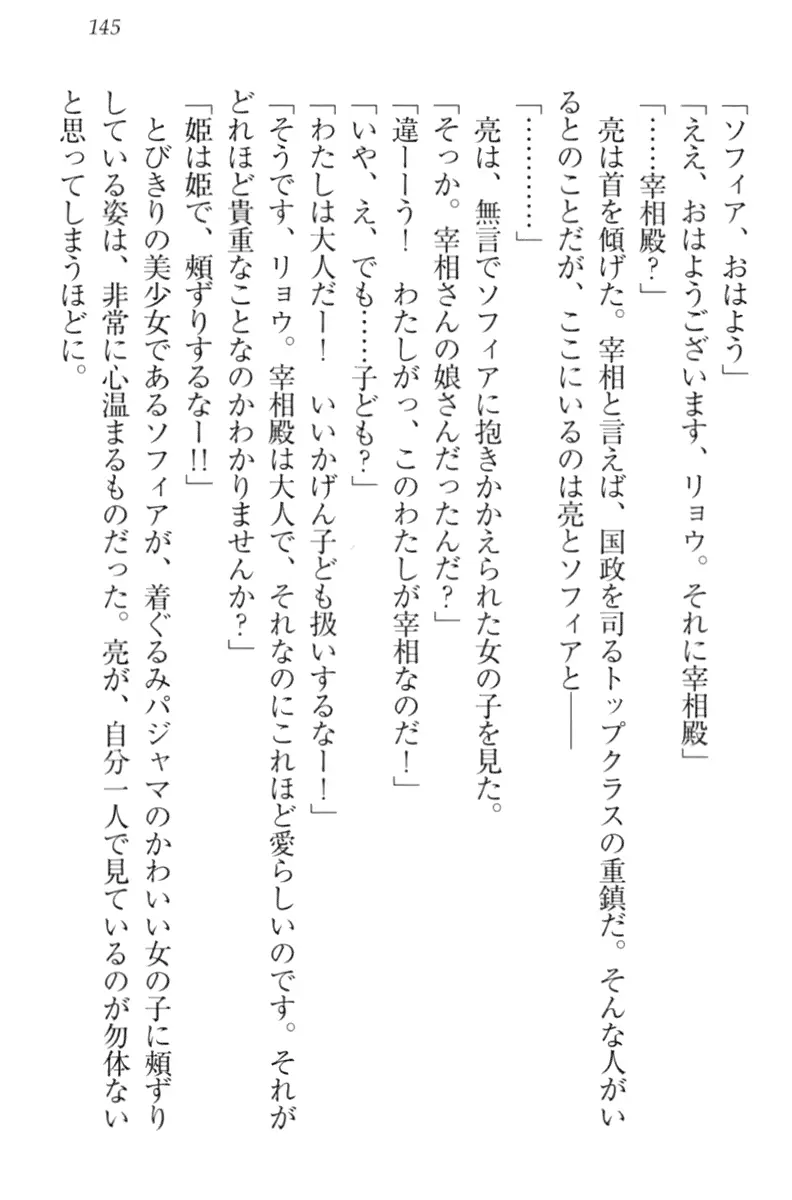 145
「ソフィア、おはよう」
「ええ、おはようございます、リョウ。それに宰相殿」
「……宰相殿?」
　亮は首を傾げた。宰相と言えば、国政を司るトップクラスの重鎮だ。そんな人がい
るとのことだが、ここにいるのは亮とソフィアと――
「…………」
　亮は、無言でソフィアに抱きかかえられた女の子を見た。
「そっか。宰相さんの娘さんだったんだ?」
「違ーーう!　わたしがっ、このわたしが宰相なのだ!」
「いや、え、でも……子ども?」
「わたしは大人だー!　いいかげん子ども扱いするなー!」
「そうです、リョウ。宰相殿は大人で、それなのにこれほど愛らしいのです。それが
どれほど貴重なことなのかわかりませんか?」
「姫は姫で、頬ずりするなー!!」
　とびきりの美少女であるソフィアが、着ぐるみパジャマのかわいい女の子に頬ずり
している姿は、非常に心温まるものだった。亮が、自分一人で見ているのが勿体ない
と思ってしまうほどに。